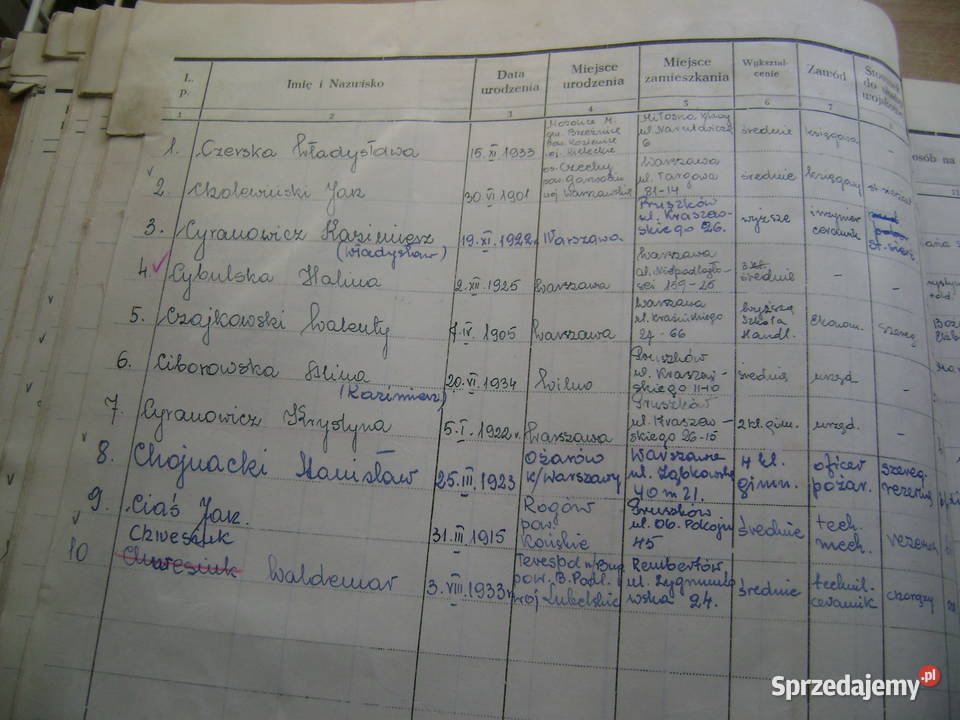 L. p.
Imię i Nazwisko
Data urodzenia
Miejsce urodzenia
Miejsce zamieszkania
Wykształ-cenie
Zawód
do wojskowej
1 2 3 4 5 6 7 8
1. Czerska Władysława 15.XI.1933 średnie księgowa –
2. Cholewiński Jan 30 VI 1901 Warszawa ul. Targowa 81-14 średnie księgowy
3. Cyranowicz Kazimierz (Władysław) 19.XI.1922r Warszawa Pruszków ul. Kraszewskiego 26. wyższe inżynier ceramik
4. Cybulska Halina 2.XII.1925 Warszawa Warszawa al. Niepodległości 159-25 średnie –
5. Czajkowski Walenty 7.IV.1905 Warszawa Warszawa ul. Krasińskiego 27-66 Wyższa Szkoła Handl. Ekonom. szereg.
6. Ciborowska Alina (Kazimierz) 20.VI.1934 Wilno Pruszków ul. Kraszewskiego 11-10 średnie urzęd. –
7. Cyranowicz Krystyna 5.I.1922r. Warszawa Pruszków ul. Kraszewskiego 26-15 2 kl. gim. urzęd. –
8. Chojnacki Stanisław 25.III.1923 Ożarów k/Warszawy Warszawa ul. Ząbkowska 40 m 21. 4 kl. gimn. oficer pożar. szereg. rezerwy
9. Ciaś Jan. 31.III.1915 Rogów pow. Końskie Pruszków ul. Ob. Pokoju 45 średnie tech. mech. rezerwa
Chwesiuk
10 Chwesiuk Waldemar 3.VIII.1933r Terespol n/Bug. pow. B.Podl. woj Lubelskie Rembertów ul. 24. średnie technik-ceramik chorąży
osób na
Sprzedajemy.pl